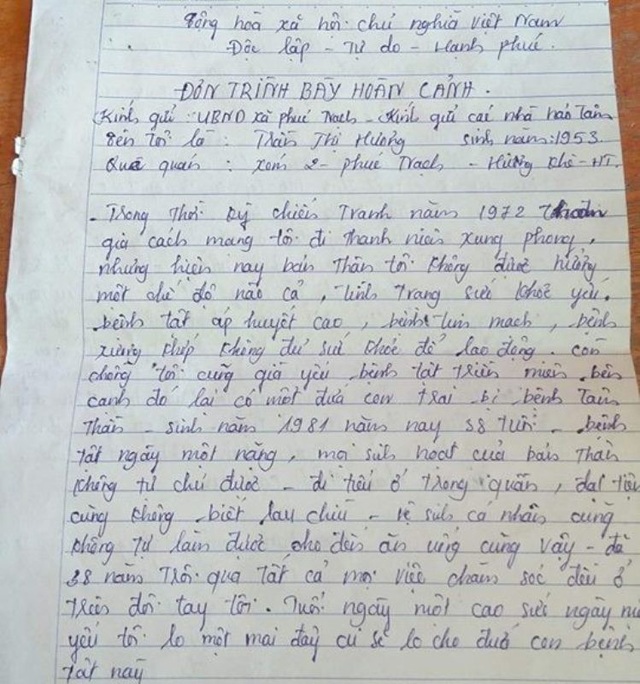 Cộng hoà xã hội chủ nghĩa việt Nam
Độc lập - Tự do - Hạnh phúc.
ĐƠN TRÌNH BÀY HOÀN CẢNH.
Kính gửi : UBND xã phúc Trạch - Kính gửi các nhà hảo Tâm
Tên tôi là : Trần Thị Hương sinh năm: 1953
Quê quán : xóm 2 - phúc Trạch - Hương Khê - HT.
- Trong Thời kỳ chiến Tranh năm 1972 Tham
gia cách mạng tôi đi Thanh niên xung phong,
nhưng hiện nay bản Thân tôi không được hưởng
một chế độ nào cả, Tình Trạng sức khoẻ yếu.
bệnh tật áp huyết cao, bệnh tim mạch, bệnh
xương khớp không đủ sức khoẻ để lao động. còn
chồng tôi cũng già yếu bệnh tật triền miên bên
cạnh đó lại có một đứa con Trai bị bệnh Tâm
Thần - sinh năm 1981 năm nay 38 tuổi - bệnh
tật ngày một nặng, mọi sinh hoạt của bản Thân
không tự chủ được - đi tiểu ở trong quần, đại tiện
cũng không biết lau chùi - vệ sinh cá nhân cũng
không Tự làm được cho đến ăn uống cũng vậy - đã
38 năm Trôi qua tất cả mọi việc chăm sóc đều ở
trên đôi tay tôi. Tuổi ngày một cao sức ngày một
yếu tôi lo một mai đây ai sẽ lo cho đứa con bệnh
tật này